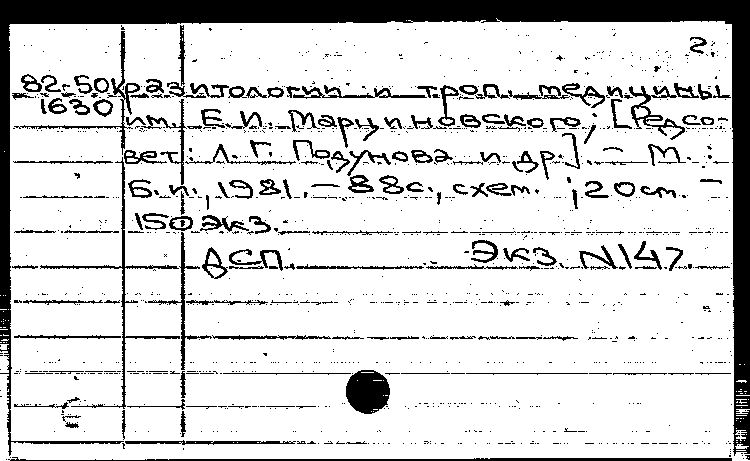 2.
82-50кразитологии и троп. медицины
1630 им. Е. И. Марциновского; [Редсо-
вет: Л. Г. Подунова и др.]. — М. :
Б. и., 1981. — 88с., схем. ; 20 см. —
150 экз.
ДСП. Экз. N147.